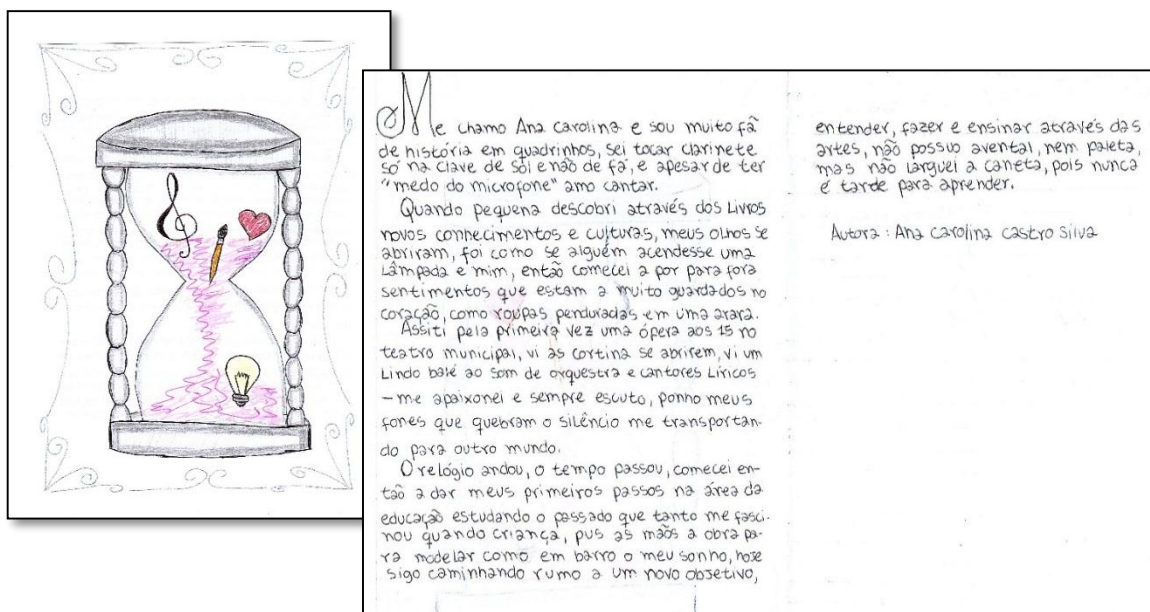 Me chamo Ana Carolina e sou muito fã
de história em quadrinhos, sei tocar clarinete
só na clave de sol e não de fá, e apesar de ter
"medo do microfone" amo cantar.
Quando pequena descobri através dos Livros
novos conhecimentos e culturas, meus olhos se
abriram, foi como se alguém acendesse uma
Lâmpada e mim, então comecei a por para fora
sentimentos que estam a muito guardados no
coração, como roupas penduradas em uma arara.
Assiti pela primeira vez uma ópera aos 15 no
teatro municipal, vi as cortina se abrirem, vi um
Lindo balé ao som de orquestra e cantores Líricos
-me apaixonei e sempre escuto, ponho meus
fones que quebram o silêncio me transportan-
do para outro mundo.
O relógio andou, o tempo passou, comecei en-
tão a dar meus primeiros passos na área da
educação estudando o passado que tanto me fasci-
nou quando criança, pus as mãos a obra pa-
ra modelar como em barro o meu sonho, hoje
sigo caminhando rumo a um novo objetivo,
entender, fazer e ensinar através das
artes, não possuo avental, nem paleta,
mas não larguei a caneta, pois nunca
é tarde para aprender.
Autora: Ana Carolina Castro Silva